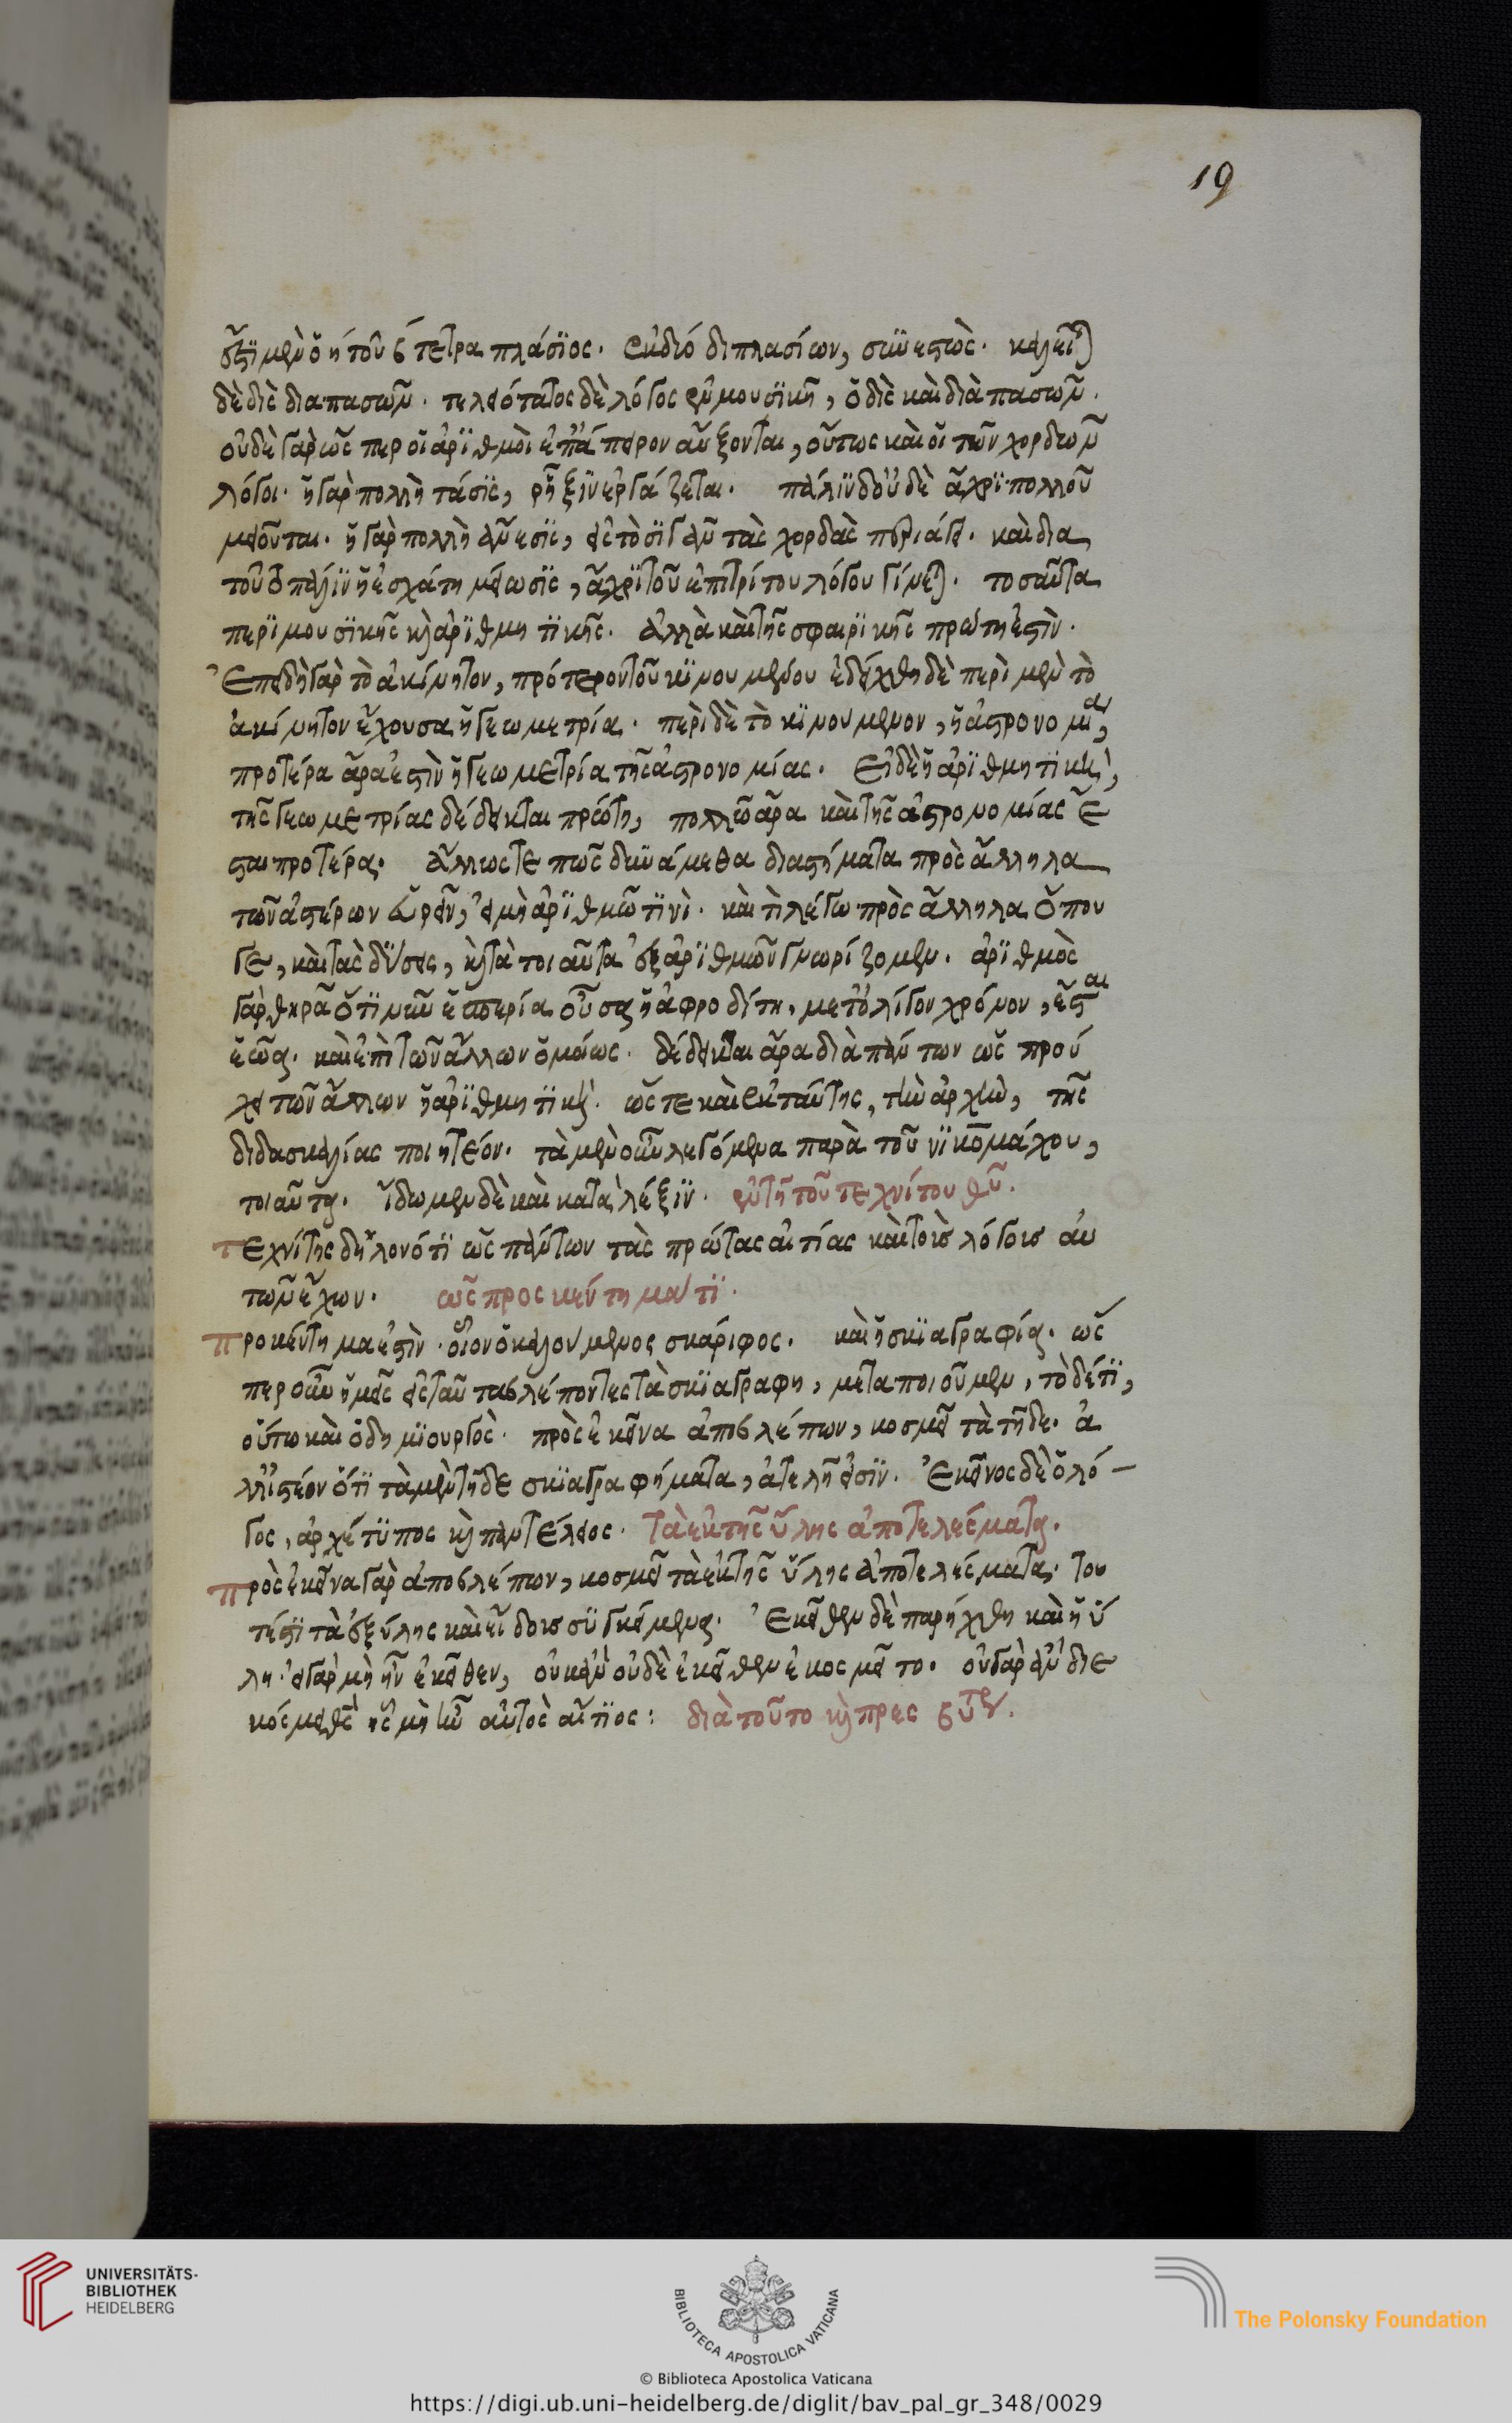 19
ἔστι μὲν ὁ η τοῦ β τετραπλάσιος. ἐκ δύο διπλασίων, συνεστώς. καλεῖται
δὲ δὶς διαπασῶν. τελεώτατος δὲ λόγος ἐν μουσικῇ, ὁ δὶς καὶ διὰ πασῶν.
οὐδὲ γὰρ ὥσπερ οἱ ἀριθμοὶ ἐπ' ἄπειρον αὔξονται, οὕτως καὶ οἱ τῶν χορδῶν
λόγοι. ἡ γὰρ πολλὴ τάσις, ῥῆξιν ἐργάζεται. πάλιν δ' οὐδὲ ἄχρι πολλοῦ
μειοῦνται. ἡ γὰρ πολλὴ ἄνεσις, εἰς τὸ σιγᾶν τὰς χορδὰς περιάγει. καὶ δια
τοῦτο πάλιν ἡ ἐσχάτη μείωσις, ἄχρι τοῦ ἐπιτρίτου λόγου γίνεται. τοσαῦτα
περὶ μουσικῆς καὶ ἀριθμητικῆς. ἀλλὰ καὶ τῆς σφαιρικῆς πρώτη ἐστὶν.
Ἐπειδὴ γὰρ τὸ ἀκίνητον, πρότερον τοῦ κινουμένου ἐδείχθη δὲ περὶ μὲν τὸ
ἀκίνητον ἔχουσα ἡ γεωμετρία. περὶ δὲ τὸ κινούμενον, ἡ ἀστρονομία,
προτέρα ἄρα ἐστὶν ἡ γεωμετρία τῆς ἀστρονομίας. Εἰ δὲ ἡ ἀριθμητικὴ,
τῆς γεωμετρίας δέδεικται πρώτη, πολλῷ ἄρα καὶ τῆς ἀστρονομίας ἔ
σται προτέρα. ἄλλως τε πῶς δυνάμεθα διαστήματα πρὸς ἄλληλα
τῶν ἀστέρων εὑρεῖν, εἰ μὴ ἀριθμῷ τινὶ. καὶ τὶ λέγω πρὸς ἄλληλα ὅπου
γε, καὶ τὰς δύσεις, καὶ τὰ τοιαῦτα ἐξ ἀριθμῶν γνωρίζομεν. ἀριθμὸς
γὰρ θηρᾷ ὅτι νῦν ἑσπερία οὖσα ἡ ἀφροδίτη, μετ' ὀλίγον χρόνον, ἔσται
ἑῴα. καὶ ἐπὶ τῶν ἄλλων ὁμοίως. δέδεικται ἄρα διὰ πάντων ὡς πρού
χει τῶν ἄλλων ἡ ἀριθμητικὴ. ὥστε καὶ ἐκ ταύτης, τὴν ἀρχὴν, τῆς
διδασκαλίας ποιητέον. τὰ μὲν οὖν λεγόμενα παρὰ τοῦ νικομάχου,
τοιαῦτα. ἴδωμεν δὲ καὶ κατὰ λέξιν. ἐν τῇ τοῦ τεχνίτου θεοῦ.
τεχνίτης δηλονότι ὡς πάντων τὰς πρώτας αἰτίας καὶ τοὺς λόγους αὐ
τῶν ἔχων. ὡς προσκεντήματι.
προκέντημα ἐστὶν. οἷον ὁ καλούμενος σκάριφος. καὶ ἡ σκιαγραφία. ὥς
περ οὖν ἡμεῖς εἰς ταῦτα βλέποντες τὰ σκιαγραφη, μεταποιοῦμεν, τὸ δέ τι,
οὕτω καὶ ὁ δημιουργὸς. πρὸς ἐκεῖνα ἀποβλέπων, κοσμεῖ τὰ τῇδε. ἀ
λλ' ἰστέον ὅτι τὰ μὲν τῇδε σκιαγραφήματα, ἀτελῆ εἰσίν. Ἐκεῖνος δὲ ὁ λό-
γος, ἀρχέτυπος καὶ παντέλειος. τὰ ἐκ τῆς ὕλης ἀποτελέσματα.
πρὸς ἐκεῖνα γὰρ ἀποβλέπων, κοσμεῖ τὰ ἐκ τῆς ὕλης ἀποτελέσματα. του
τέστι τὰ ἐξ ὕλης καὶ εἴδους συγκείμενα. Ἐκεῖθεν δὲ παρήχθη καὶ ἡ ὕ
λη. εἰ γὰρ μὴ ἦν ἐκεῖθεν, οὐκ ἂν οὐδὲ ἐκεῖθεν ἐκοσμεῖτο. οὐ γὰρ ἂν διε
κόσμηθε ἧς μὴ ἦν αὐτὸς αἴτιος: διὰ τοῦτο καὶ πρεσβύτερ.
UNIVERSITÄTS-
BIBLIOTHEK
HEIDELBERG
BIBLIOTECA APOSTOLICA VATICANA
The Polonsky Foundation
© Biblioteca Apostolica Vaticana
https://digi.ub.uni-heidelberg.de/diglit/bav_pal_gr_348/0029